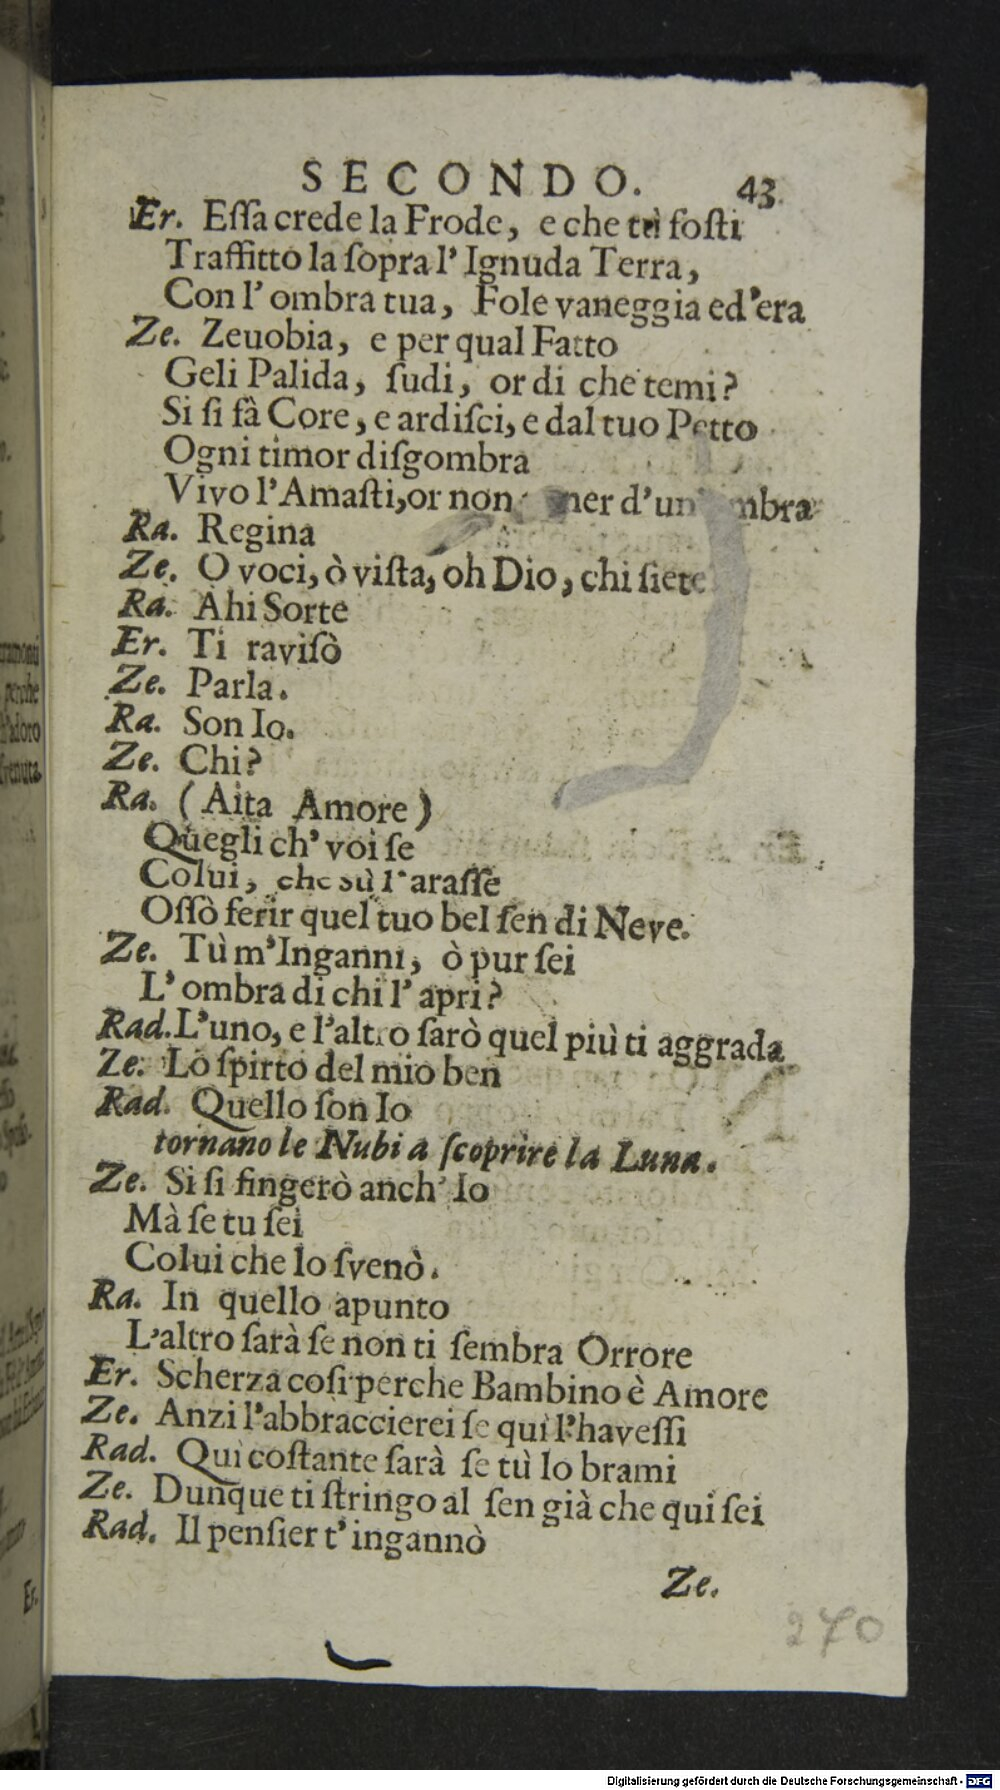 SECONDO. 43.
Er. Eſſa crede la Frode, e che tù foſti
Traffitto la ſopra l' Ignuda Terra,
Con l' ombra tua, Fole vaneggia ed'era
Ze. Zeuobia, e per qual Fatto
Geli Palida, ſudi, or di che temi?
Si ſi fà Core, e ardiſci, e dal tuo Petto
Ogni timor diſgombra
Vivo l'Amaſti, or non d'un
Ra. Regina
Ze. O voci, ò viſta, oh Dio, chi ſiete
Ra. Ahi Sorte
Er. Ti raviſò
Ze. Parla.
Ra. Son Io.
Ze. Chi?
Ra. (Aita Amore)
Quegli ch' voi ſe
Colui, che sù l'araſſe
Oſſò ferir quel tuo bel ſen di Neve.
Ze. Tù m'Inganni, ò pur ſei
L' ombra di chi l' apri?
Rad. L'uno, e l'altro ſarò quel più ti aggrada
Ze. Lo ſpirto del mio ben
Rad. Quello ſon Io
tornano le Nubi a ſcoprire la Luna.
Ze. Si ſi fingerò anch' Io
Mà ſe tu ſei
Colui che lo ſvenò.
Ra. In quello apunto
L'altro ſarà ſe non ti ſembra Orrore
Er. Scherza coſi perche Bambino è Amore
Ze. Anzi l'abbraccierei ſe qui l'haveſſi
Rad. Qui coſtante ſarà ſe tù lo brami
Ze. Dunque ti ſtringo al ſen già che qui ſei
Rad. Il penſier t' ingannò
Ze.
270
Digitalisierung gefördert durch die Deutsche Forschungsgemeinschaft - DFG